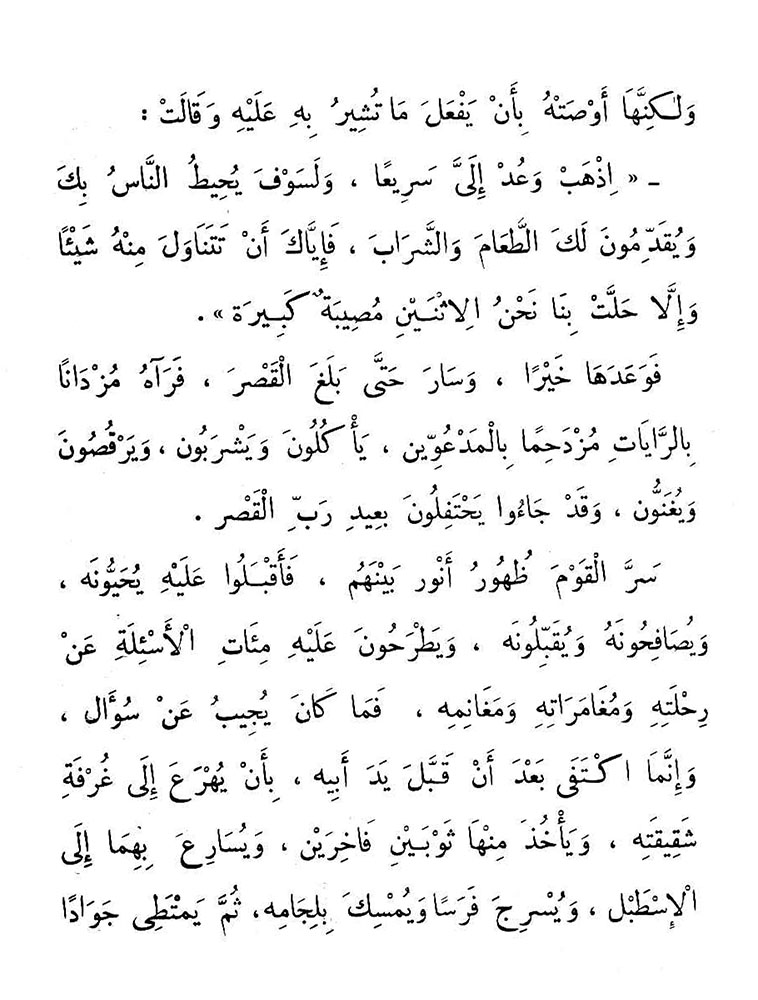 وَلٰكِنَّهَا أَوْصَتْهُ بِأَنْ يَفْعَلَ مَا تُشِيرُ بِهِ عَلَيْهِ وَقَالَتْ :
ـ « اِذْهَبْ وَعُدْ إِلَىَّ سَرِيعًا ، وَلَسَوْفَ يُحِيطُ النَّاسُ بِكَ
وَيُقَدِّمُونَ لَكَ الطَّعَامَ وَالشَّرَابَ ، فَإِيَّاكَ أَنْ تَتَنَاوَلَ مِنْهُ شَيْئًا
وَإِلَّا حَلَّتْ بِنَا نَحْنُ الِاثْنَيْنِ مُصِيبَةٌ كَبِيرَة » .
فَوَعَدَهَا خَيْرًا ، وَسَارَ حَتَّى بَلَغَ الْقَصْرَ ، فَرَآهُ مُزْدَانًا
بِالرَّايَاتِ مُزْدَحِمًا بِالْمَدْعُوِّين ، يَأْكُلُونَ وَيَشْرَبُون ، وَيَرْقُصُونَ
وَيُغَنُّون ، وَقَدْ جَاءُوا يَحْتَفِلُونَ بِعِيدِ رَبِّ الْقَصْر .
سَرَّ الْقَوْمَ ظُهُورُ أَنْور بَيْنَهُم ، فَأَقْبَلُوا عَلَيْهِ يُحَيُّونَه ،
وَيُصَافِحُونَهُ وَيُقَبِّلُونَه ، وَيَطْرَحُونَ عَلَيْهِ مِئَاتِ الْأَسْئِلَةِ عَنْ
رِحْلَتِهِ وَمُغَامَرَاتِهِ وَمَغَانِمِه ، فَمَا كَانَ يُجِيبُ عَنْ سُؤَال ،
وَإِنَّمَا اكْتَفَى بَعْدَ أَنْ قَبَّلَ يَدَ أَبِيه ، بِأَنْ يُهْرَعَ إِلَى غُرْفَةِ
شَقِيقَتِه ، وَيَأْخُذَ مِنْهَا ثَوْبَيْنِ فَاخِرَيْن ، وَيُسَارِعَ بِهِمَا إِلَى
الْإِسْطَبْل ، وَيُسْرِجَ فَرَسًا وَيُمْسِكَ بِلِجَامِه، ثُمَّ يَمْتَطِى جَوَادًا